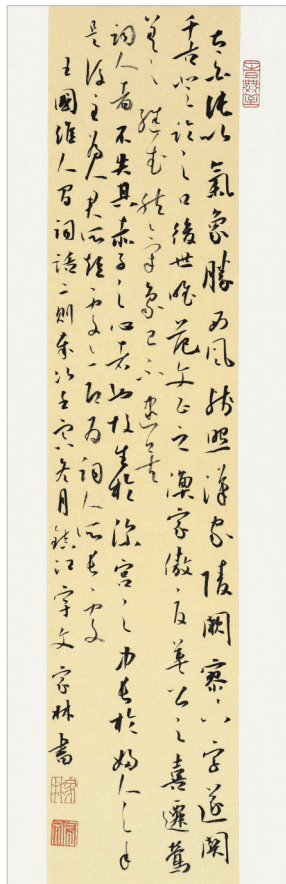 太白純以氣象勝西風殘照漢家陵闕寥寥八字遂關
千古登臨之口後世唯范文正之漁家傲夏英公之喜遷鶯
差足繼武然氣象已不逮矣
詞人者不失其赤子之心者也故生於深宮之中長於婦人之手
是後主為人君所短處亦即為詞人所長處
王國維人間詞話二則歲次壬寅冬月鎮江宇文家林書